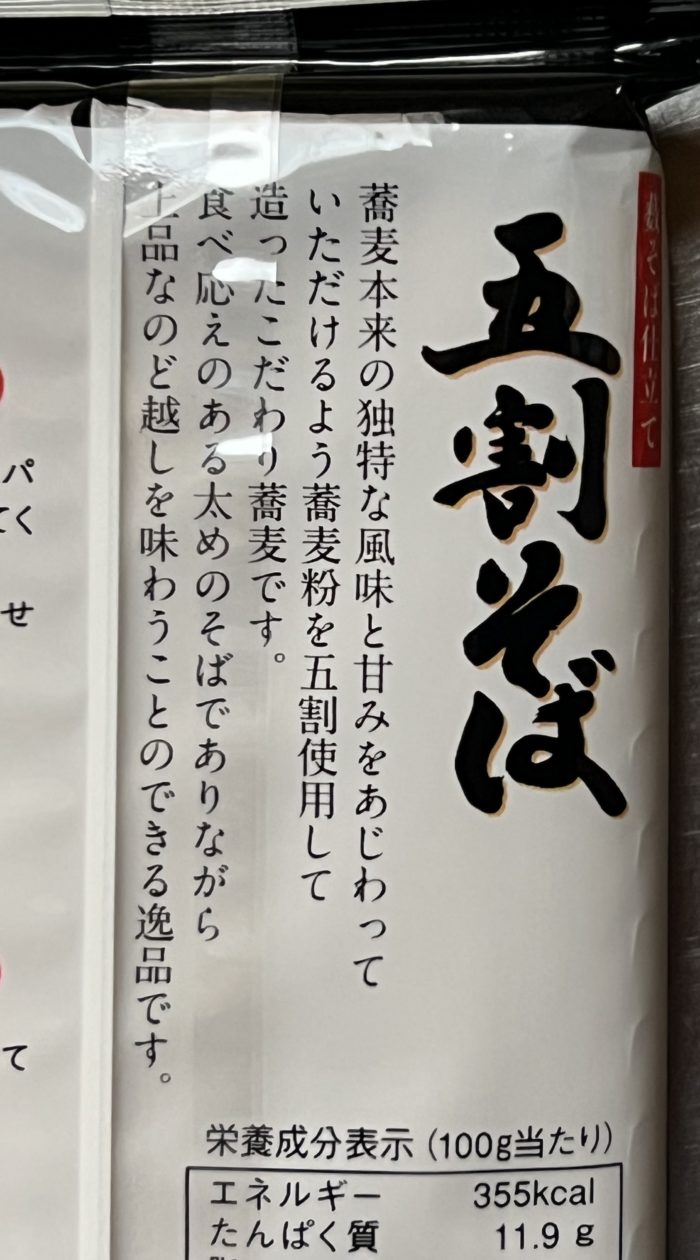 藪そば仕立て
五割そば
蕎麦本来の独特な風味と甘みをあじわって
いただけるよう蕎麦粉を五割使用して
造ったこだわり蕎麦です。
食べ応えのある太めのそばでありながら
上品なのど越しを味わうことのできる逸品です。
パ
てく
せ
て
栄養成分表示(100g当たり)
エネルギー 355kcal
たんぱく質 11.9 g